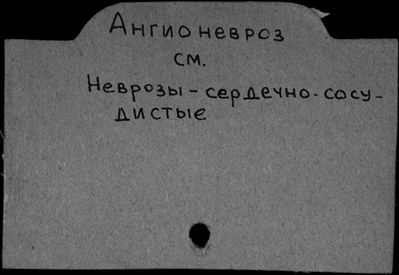 Ангионевроз
см.
Неврозы - сердечно-сосу-
дистые